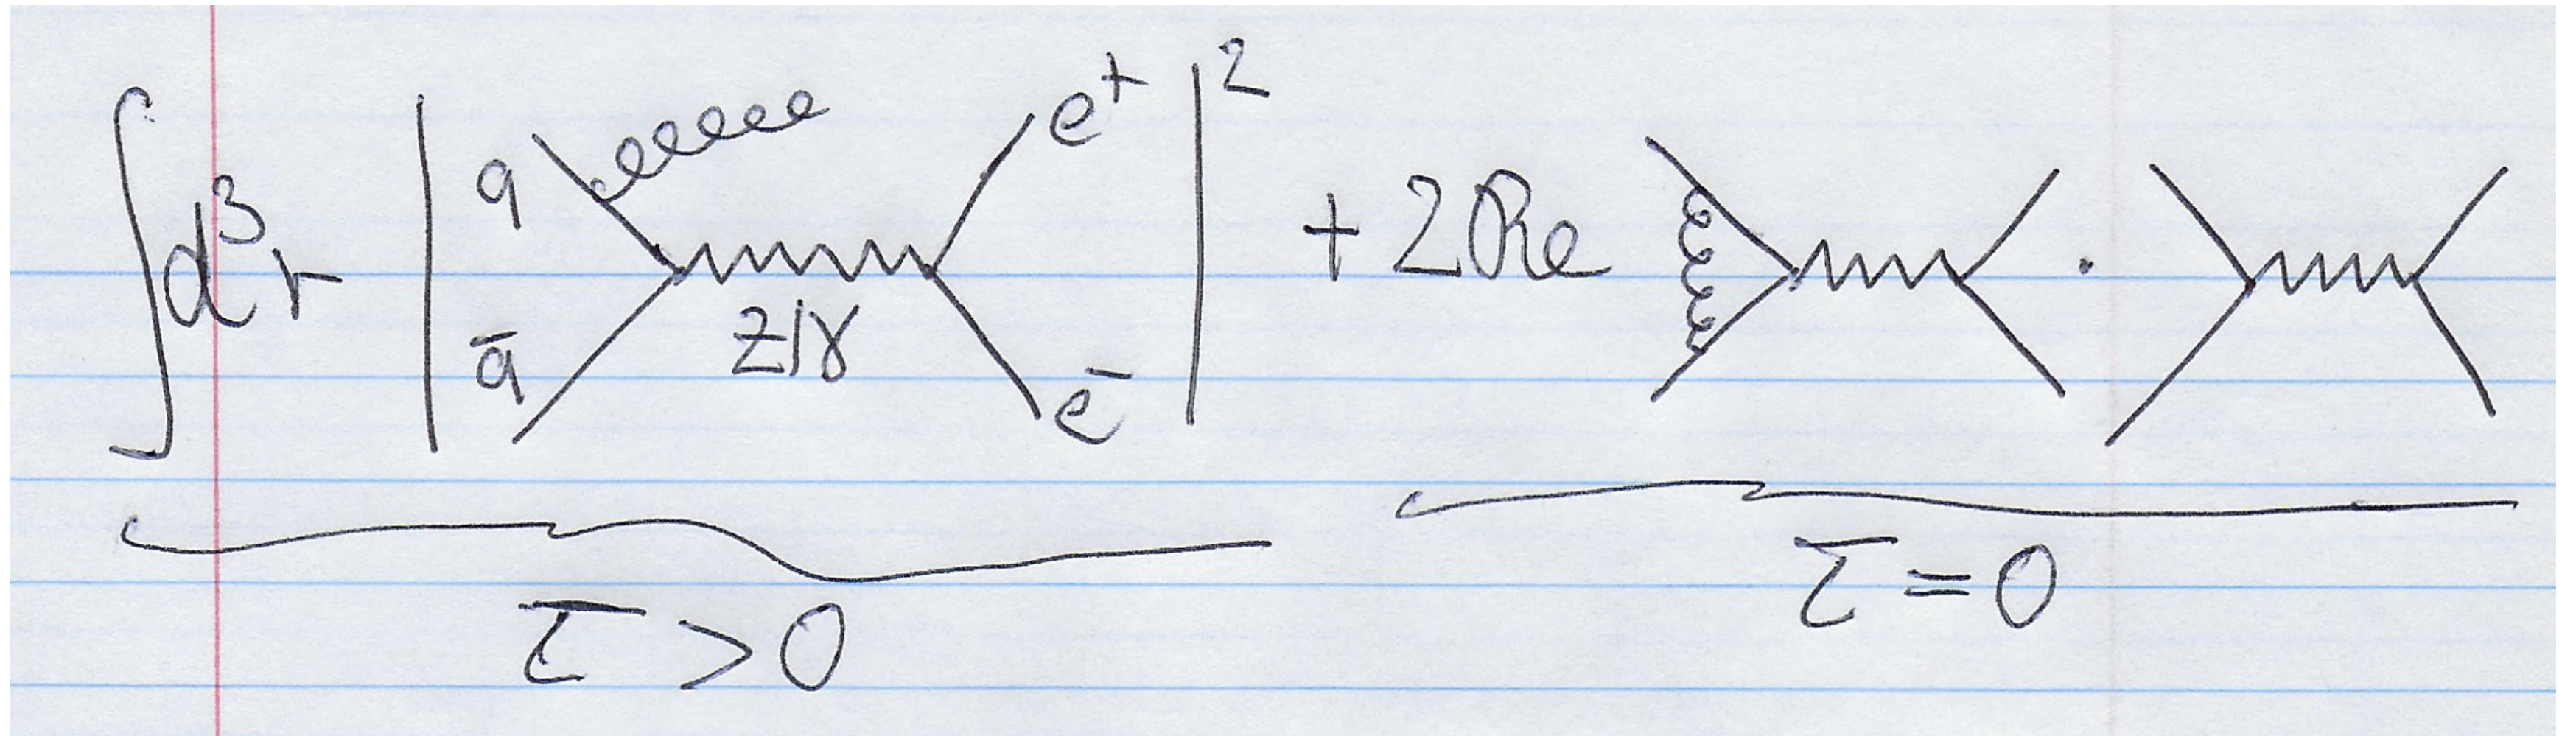 ∫d³r | q q̄ Z/γ e⁺ e⁻ |² + 2Re ·
τ > 0 τ = 0